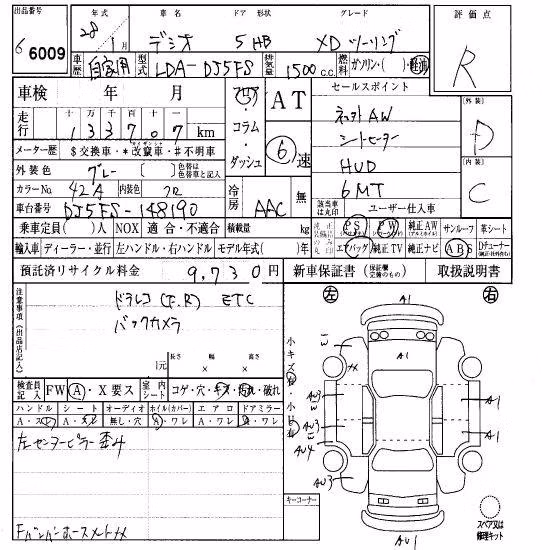 出品番号 車名 ドア 形状 グレード 評価点
6 6009 28年 1月 デミオ 5 HB XD ツーリング R
車歴 自家用 型式 LDA-DJ5FS 排気量 1500 c.c. 燃料 ガソリン・( )・軽油
車検 年 月 フロア・コラム・ダッシュ AT 6速 セールスポイント 外装 D
走行 十 万 千 百 十 一
1 3 3 7 0 7 km
ネット AW
シートヒーター
メーター歴 $交換車・*改竄車・#不明車 HUD 内装 C
外装色 グレー [ ] 色替は色替車と記入 6MT
カラーNo. 42A 内装色 クロ 冷房 AAC 無 該当車は丸印 ユーザー仕入車
車台番号 DJ5FS-148190
乗車定員( )人 NOX 適合・不適合 積載量 kg 純正装備品のみ丸印 PS PW 純正AW サンルーフ 革シート
輸入車 ディーラー・並行 左ハンドル・右ハンドル モデル年式( )年 エアバッグ 純正TV 純正ナビ ABS Dチューナー
預託済リサイクル料金 9,730円 新車保証書 取扱説明書
注意事項(出品店記入) ドラレコ (F.R) ETC
バックカメラ
元 長さ × 幅 × 高さ
左 右
A1
A1
小キズ有・小凹有
検査員記入 FW A・X要ス 室内シート コゲ・穴・キズ・汚れ・破れ
ハンドル シート オーディオ ホイル(カバー) エアロ ドアミラー
A・スレ A・スレ 無し・穴 A・ワレ A・ワレ A・ワレ
左センターピラー歪み
AU3
W
A1
AU3
A1
AU4
AU3
キーコーナー
スペア又は修理キット
AU1